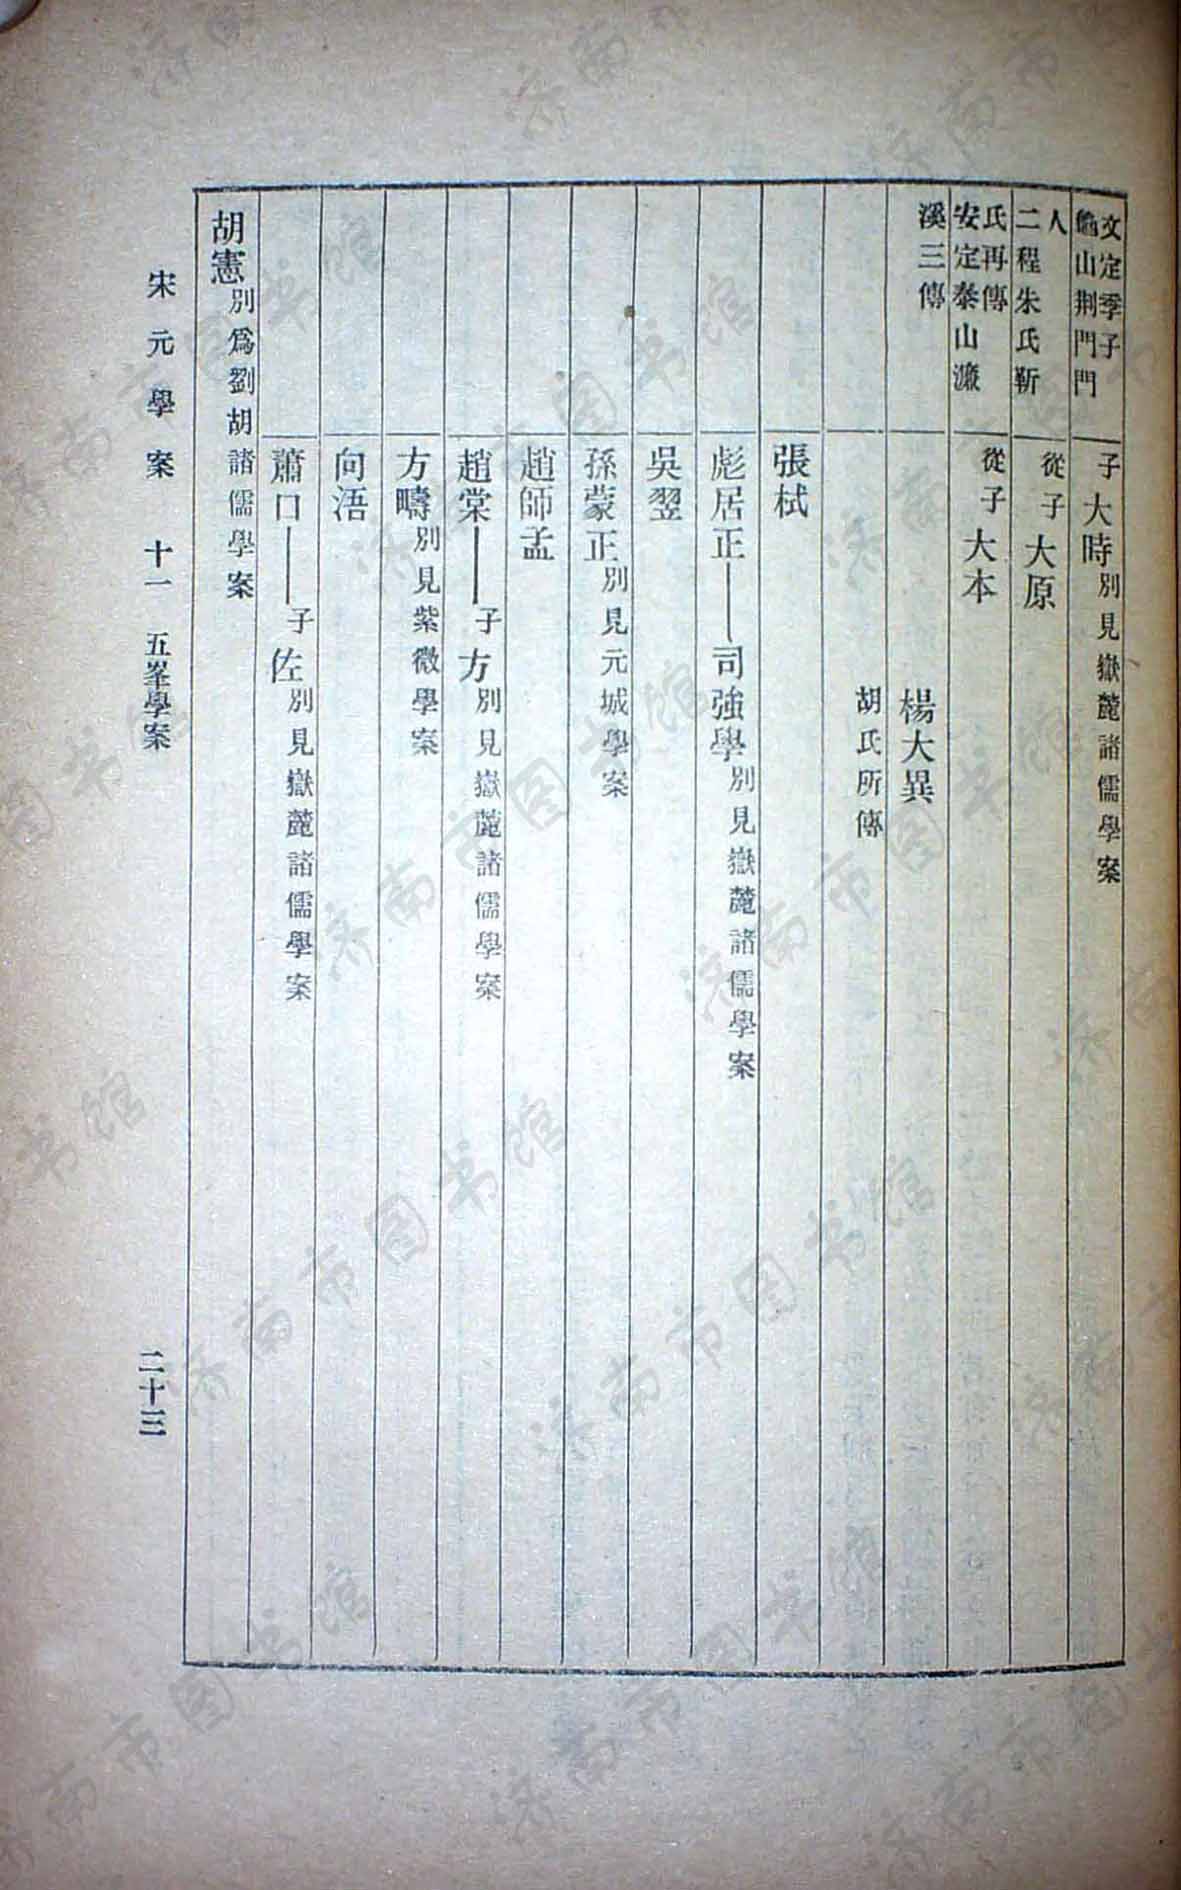 文定季子
龜山荆門門
人
二程朱氏靳
氏再傳
安定泰山濂
溪三傳
子大時別見嶽麓諸儒學案
從子大原
從子大本
楊大異
胡氏所傳
張栻
彪居正——司強學別見嶽麓諸儒學案
吳翌
孫蒙正別見元城學案
趙師孟
趙棠——子方別見嶽麓諸儒學案
方疇別見紫微學案
向浯
蕭口——子佐別見嶽麓諸儒學案
胡憲別爲劉胡諸儒學案
宋元學案 十一 五峯學案 二十三
济南市图书馆